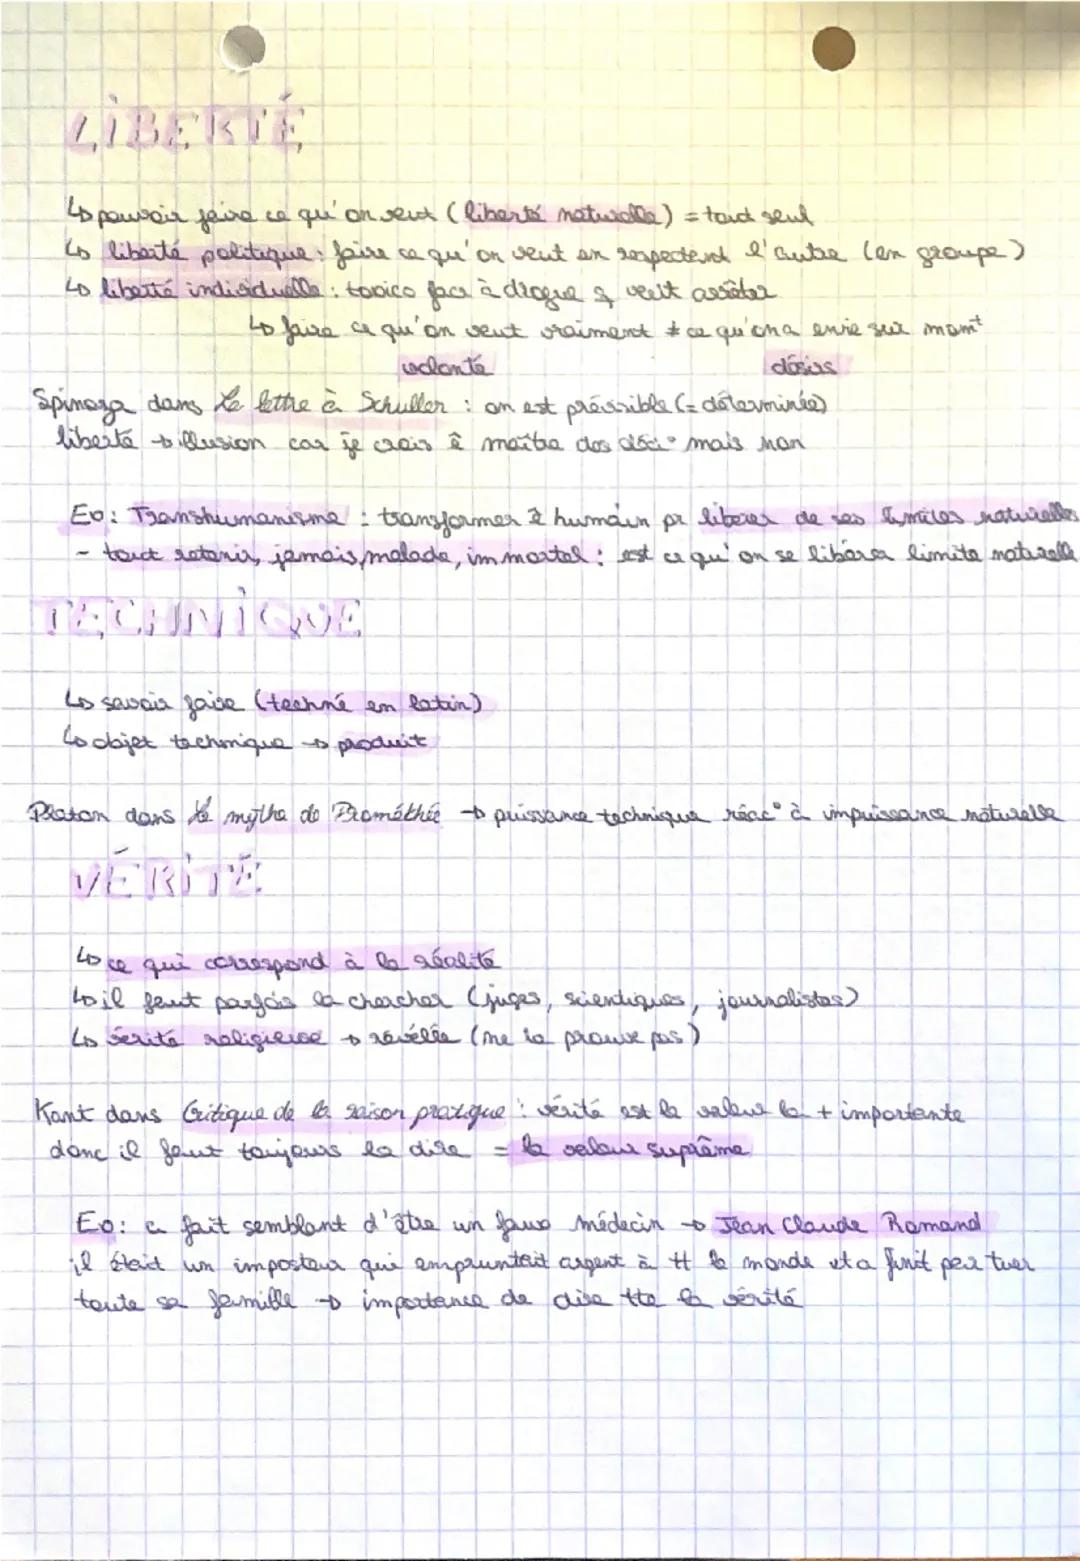 LIBERTÉ
↳ pouvoir faire ce qu'on veut (liberté naturelle) = tout seul
↳ liberté politique : faire ce qu'on veut en respectent l'autre (en groupe)
↳ liberté individuelle : toxico face à drogue & veut arrêter
↳ faire ce qu'on veut vraiment ≠ ce qu'on a envie sur momt
volonté désirs
Spinoza dans La lettre à Schuller : on est prévisible (= déterminée)
liberté → illusion car je crois ê maître des déci° mais non
Ex : Transhumanisme : transformer ê humain pr liberer de ses limites naturelles
- tout retenir, jamais malade, immortel : est ce qu'on se libérer limite naturelle
TECHNIQUE
↳ savoir faire (techné en latin)
↳ objet technique → produit
Platon dans Le mythe de Prométhée → puissance technique réac° à impuissance naturelle
VÉRITÉ
↳ ce qui correspond à la réalité
↳ il faut parfois la chercher (juges, scientiques, journalistes)
↳ vérité religieuse → révélée (ne la prouve pas)
Kant dans Critique de la raison pratique : vérité est la valeur la + importante
donc il faut toujours la dire = la valeur suprême
Ex : a fait semblant d'être un faux médecin → Jean Claude Romand
il était un imposteur qui empruntait argent à tt le monde et a finit par tuer
toute sa famille → importance de dire tte la vérité